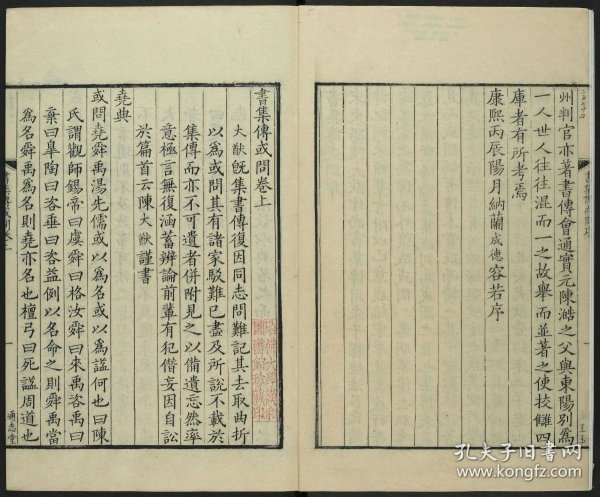 州判官亦著書傳會通實元陳澔之父與東陽别爲
一人世人往往混而一之故舉而並著之使校讎四
庫者有所考焉
康熙丙辰陽月納蘭成德容若序
書集傳或問卷上
大猷旣集書傳復因同志問難記其去取曲折
以爲或問其有諸家駁難已盡及所說不載於
集傳而亦不可遺者併附見之以備遺忘然率
意極言無復涵蓄辨論前輩有犯僭妄因自訟
於篇首云陳大猷謹書
堯典
或問堯舜禹湯先儒或以爲名或以爲諡何也曰陳
氏謂觀師錫帝曰虞舜曰格汝舜曰來禹咨禹曰
棄曰皐陶曰咨垂曰咨益例以名命之則舜禹當
爲名舜禹爲名則堯亦名也檀弓曰死諡周道也
一
通志堂
孔夫子旧书网
www.kongfz.com